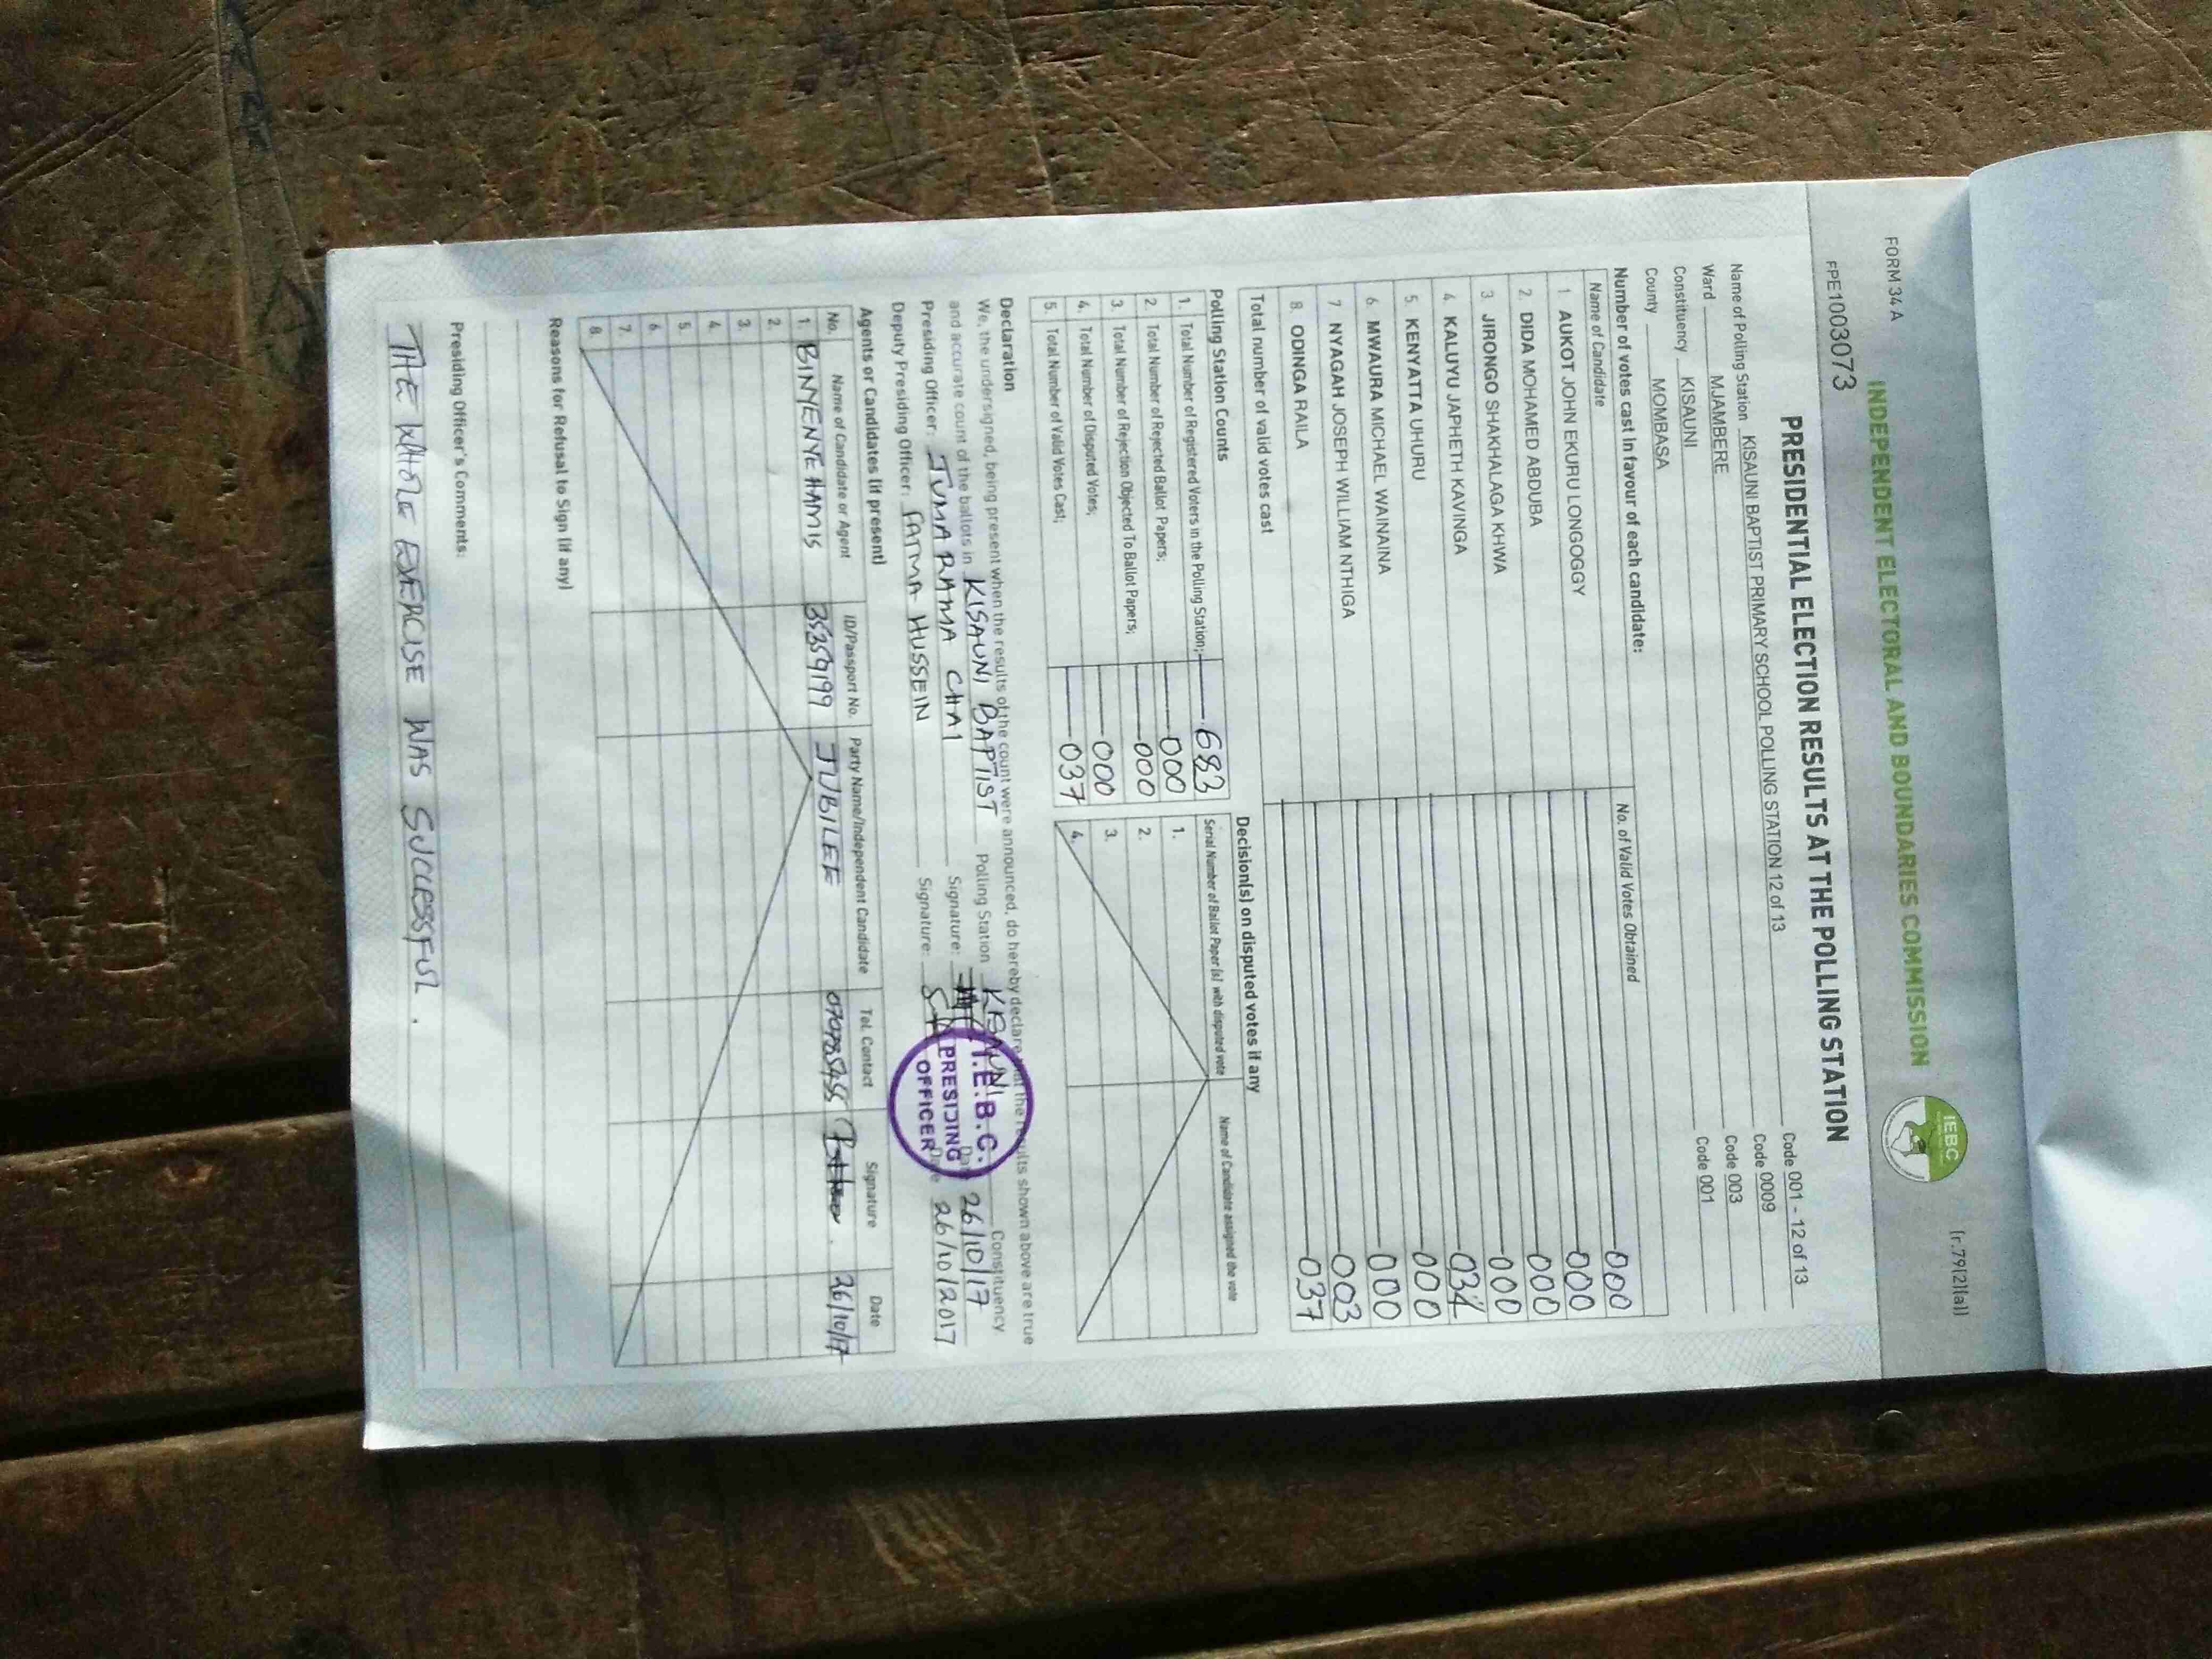 FORM 34 A
[r.79(2)(a)]
INDEPENDENT ELECTORAL AND BOUNDARIES COMMISSION
IEBC
FPE1003073
PRESIDENTIAL ELECTION RESULTS AT THE POLLING STATION
Name of Polling Station KISAUNI BAPTIST PRIMARY SCHOOL POLLING STATION 12 of 13 Code 001 - 12 of 13
Ward MJAMBERE Code 0009
Constituency KISAUNI Code 003
County MOMBASA Code 001
Number of votes cast in favour of each candidate:
Name of Candidate No. of Valid Votes Obtained
1 AUKOT JOHN EKURU LONGOGGY 000
2. DIDA MOHAMED ABDUBA 000
3 JIRONGO SHAKHALAGA KHWA 000
4 KALUYU JAPHETH KAVINGA 000
5. KENYATTA UHURU 034
6. MWAURA MICHAEL WAINAINA 000
7 NYAGAH JOSEPH WILLIAM NTHIGA 000
8. ODINGA RAILA 003
Total number of valid votes cast 037
Polling Station Counts
1. Total Number of Registered Voters in the Polling Station; 683
2. Total Number of Rejected Ballot Papers; 000
3. Total Number of Rejection Objected To Ballot Papers; 000
4. Total Number of Disputed Votes; 000
5. Total Number of Valid Votes Cast; 037
Decision(s) on disputed votes if any
Serial Number of Ballot Paper (s) with disputed vote Name of Candidate assigned the vote
1.
2.
3.
4.
Declaration
We, the undersigned, being present when the results of the count were announced, do hereby declare that the results shown above are true
and accurate count of the ballots in KISAUNI BAPTIST Polling Station KISAUNI Constituency
Presiding Officer: JUMA RAMA CHAI Signature: Date 26/10/17
Deputy Presiding Officer: FATMA HUSSEIN Signature: Date 26/10/2017
I.E.B.C.
PRESIDING
OFFICER
Agents or Candidates (if present)
No. Name of Candidate or Agent ID/Passport No. Party Name/Independent Candidate Tel. Contact Signature Date
1. BINYENYE HAMIS 35359199 JUBILEE 26/10/17
2.
3.
4.
5.
6.
7.
8.
Reasons for Refusal to Sign (if any)
Presiding Officer's Comments:
THE WHOLE EXERCISE WAS SUCCESSFUL.